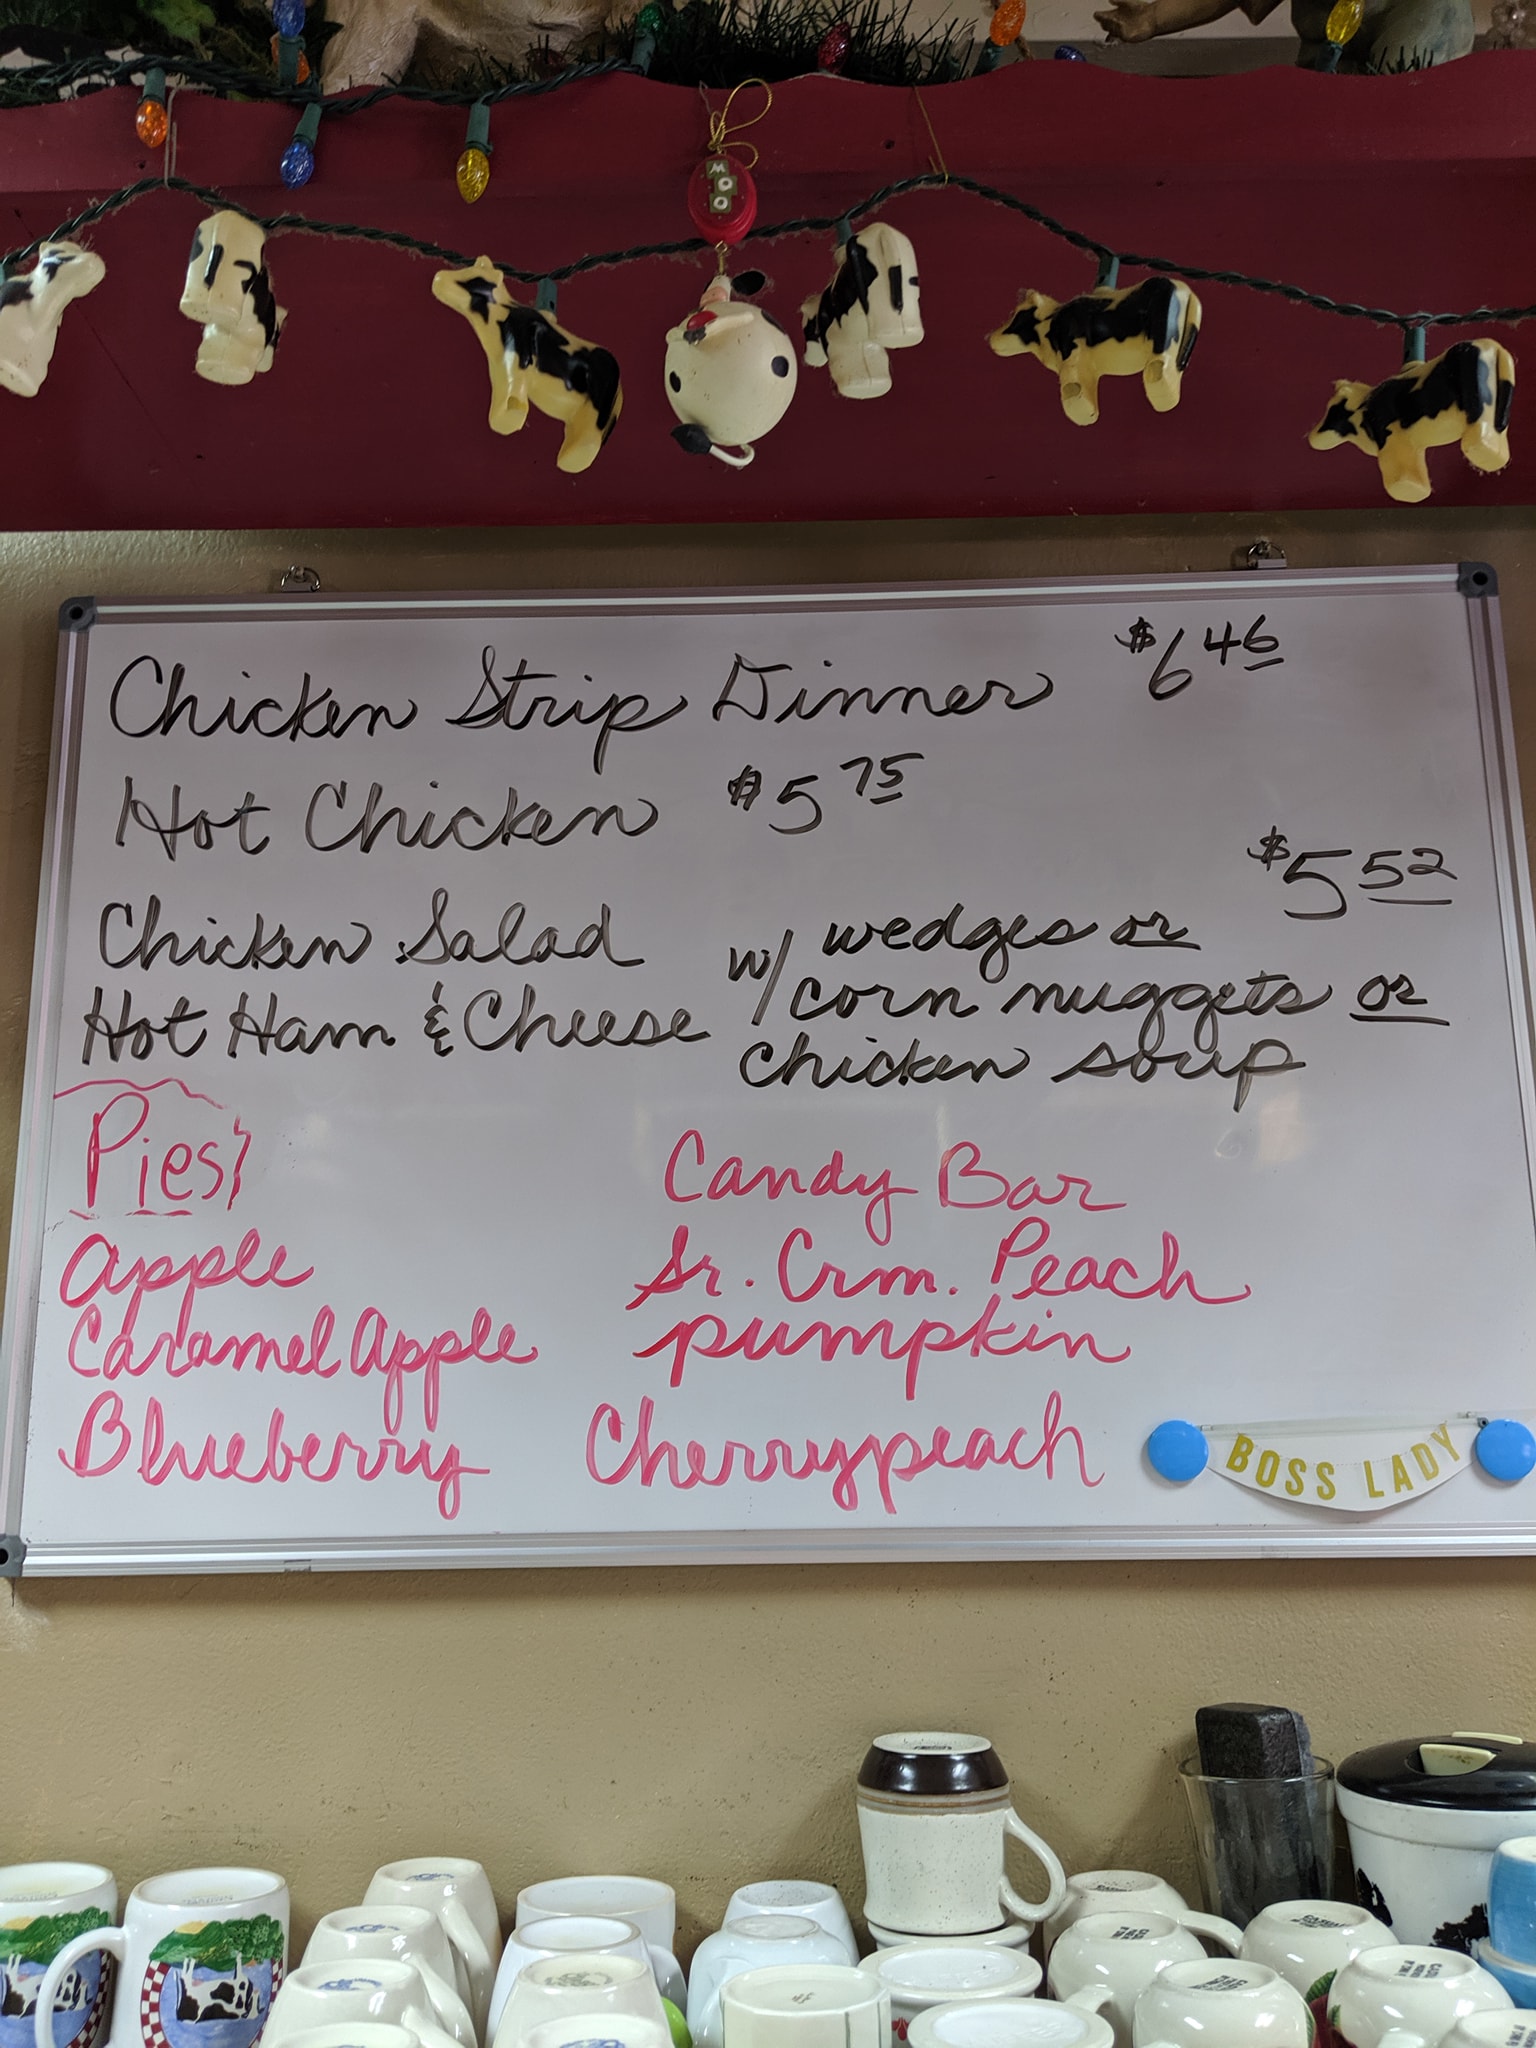 MOO
Chicken Strip Dinner $6 46
Hot Chicken $5 75
$5 52
Chicken Salad
Hot Ham & Cheese
w/ wedges or
corn nuggets or
chicken soup
Pies
Apple
Caramel Apple
Blueberry
Candy Bar
Sr. Crm. Peach
pumpkin
Cherrypeach
BOSS LADY